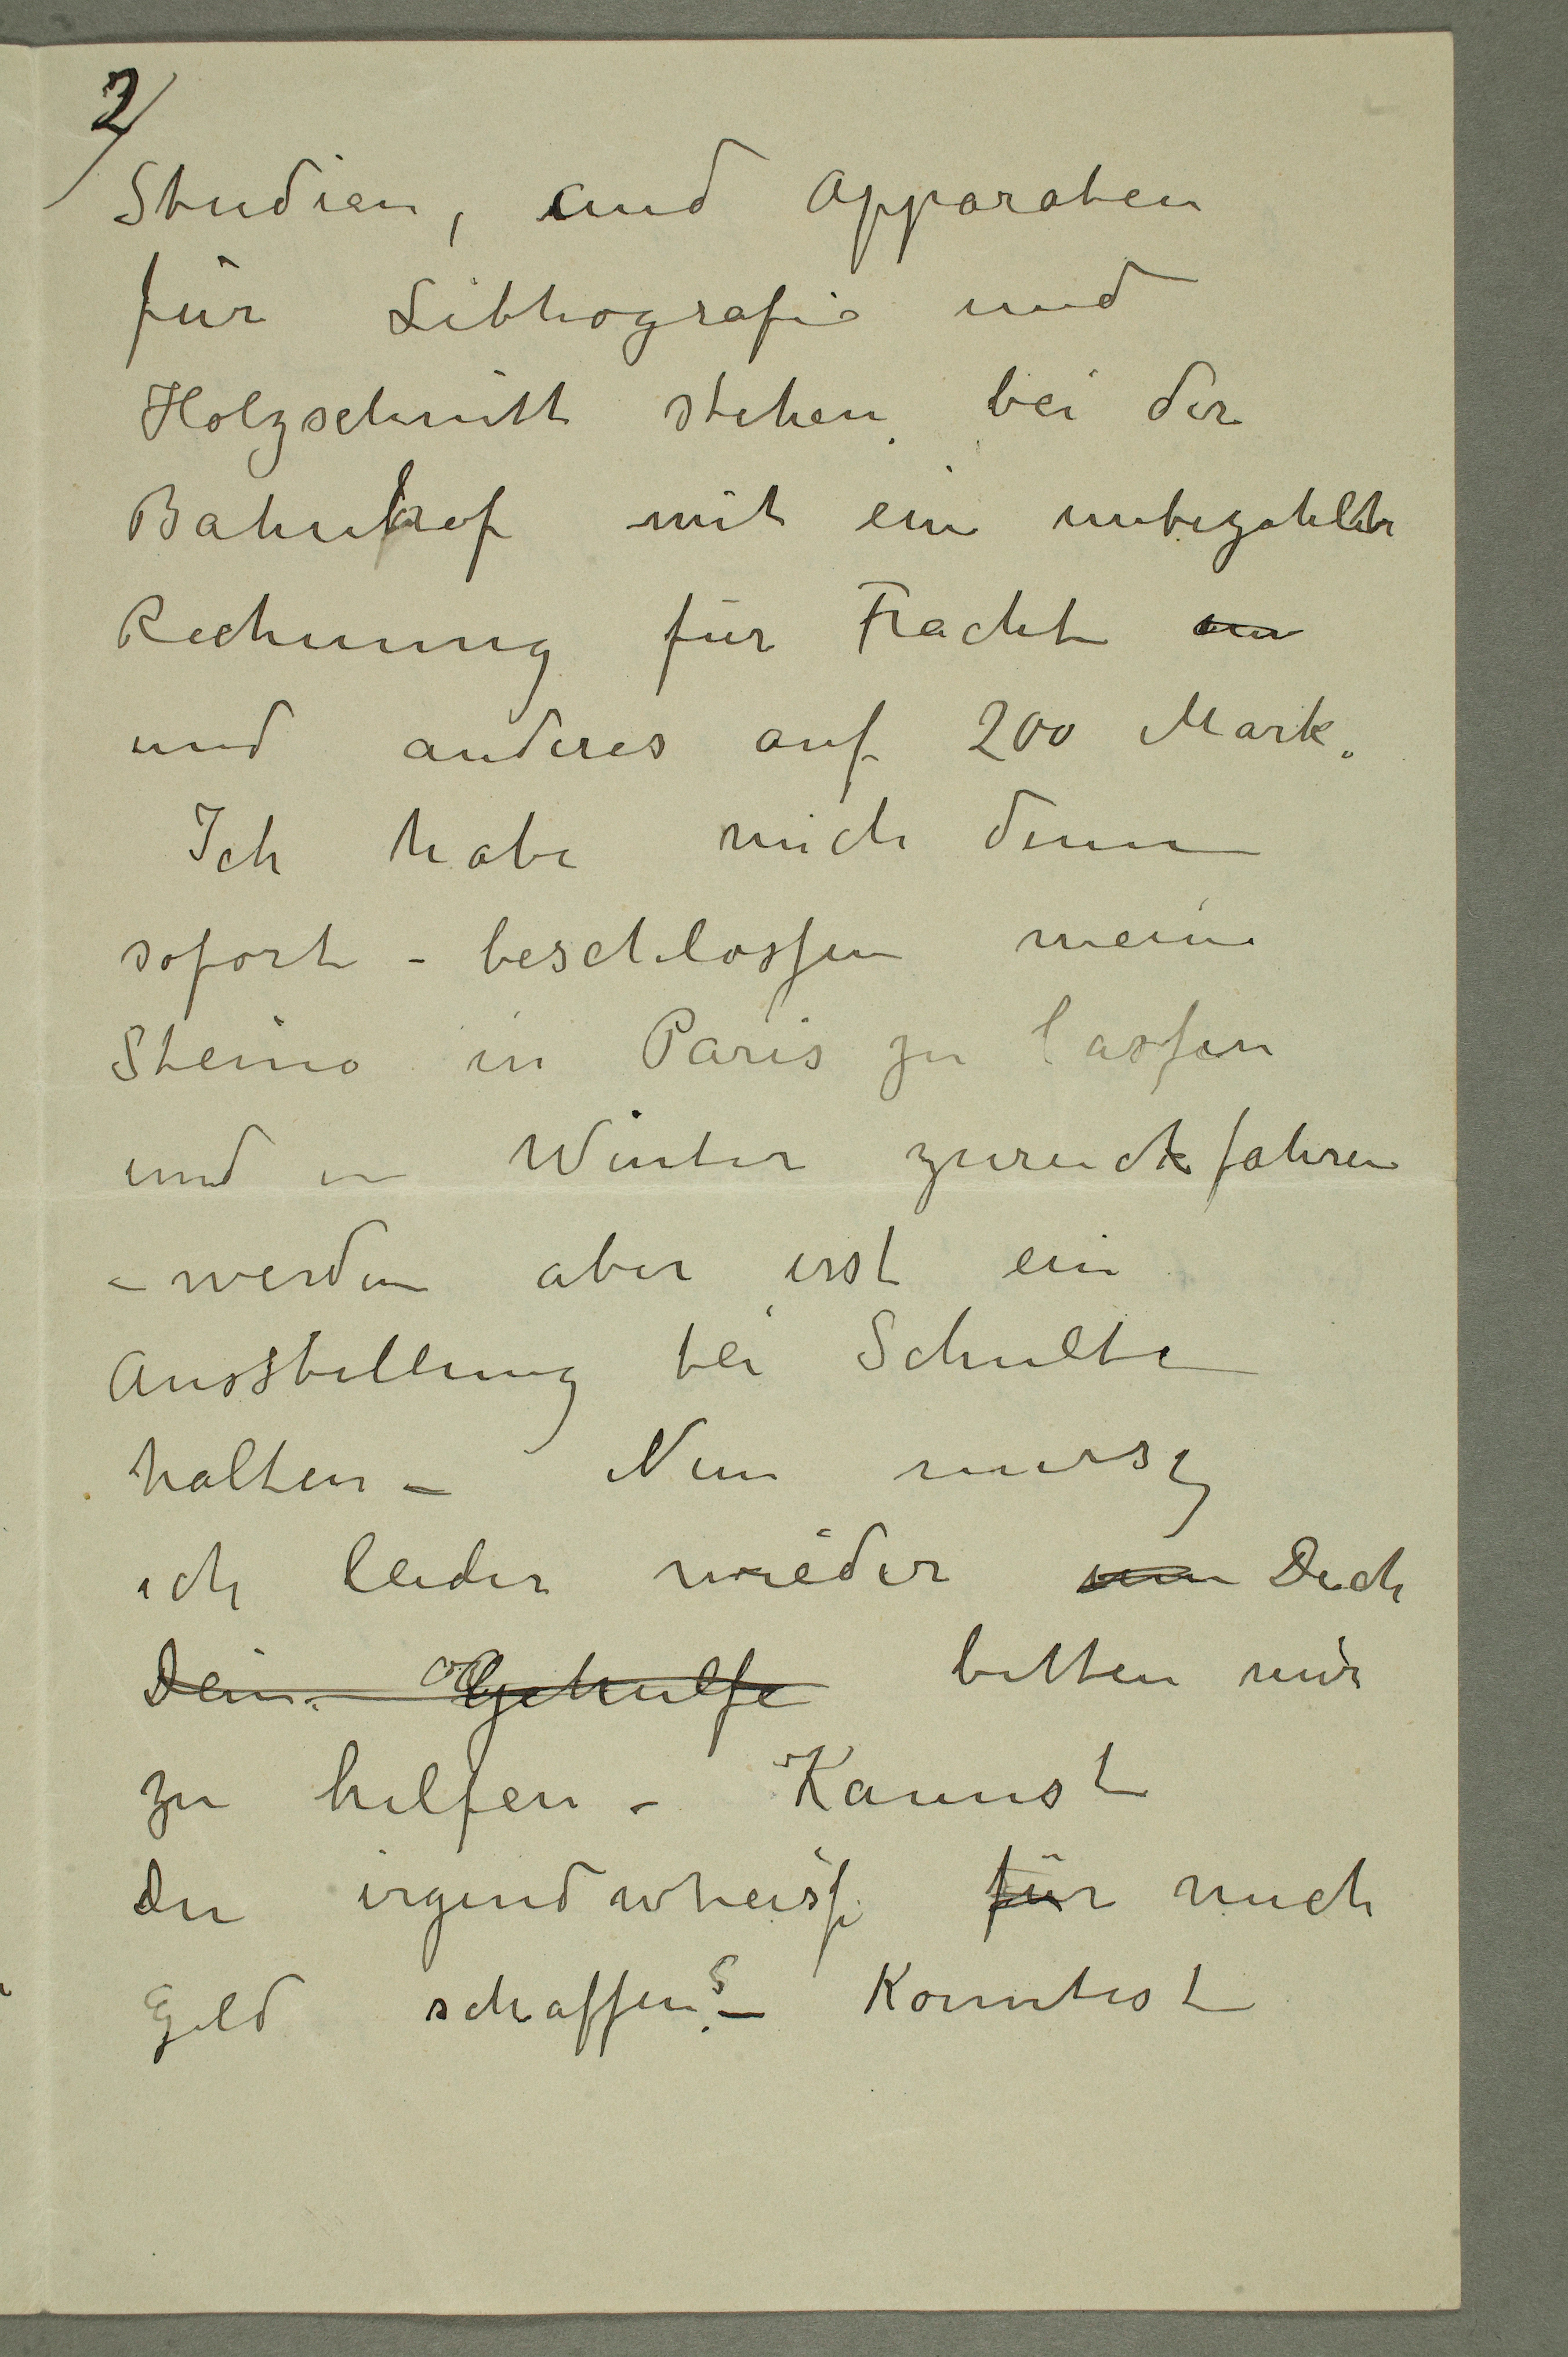 2/
Studien, und Apparaten
für Lithografie und
Holzschnitt stehen bei der
Bahnhof mit ein unbezahlte
Rechnung für Fracht
und anderes auf 200 Mark.
Ich habe mich denn
sofort – beschlossen meine
Steine in Paris zu lassen
und in Winter zuruckfahren
– werden aber erst ein
Ausstellung bei Schulte
halten – Nun musz
ich leider wieder Dich
Dein Gehulfe bitten mir
zu helfen – Kannst
Du irgendwheisse für mich
Geld schaffen? – Konntest